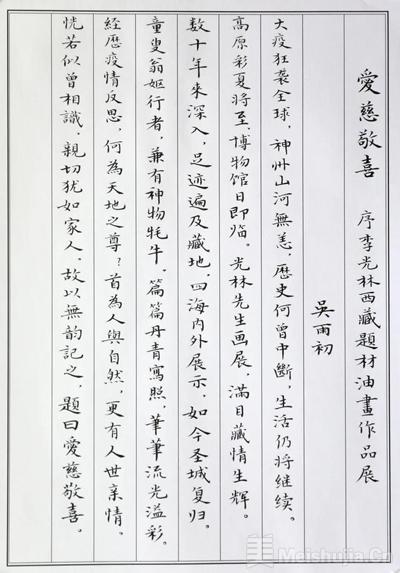 愛慈敬喜 序李光林西藏題材油畫作品展
吳雨初
大疫狂袭全球，神州山河無恙，歷史何曾中斷，生活仍將继续。
高原彩夏將至，博物馆日即临。光林先生画展，滿目藏情生辉。
数十年来深入，足迹遍及藏地，四海内外展示，如今圣城复归。
童叟翁妪行者，兼有神物牦牛。篇篇丹青寫照，筆筆流光溢彩。
经歷疫情反思，何為天地之尊？首為人與自然，更有人世亲情。
恍若似曾相識，親切犹如家人，故以無韵記之，題曰愛慈敬喜。
美 Meishujia.Cn